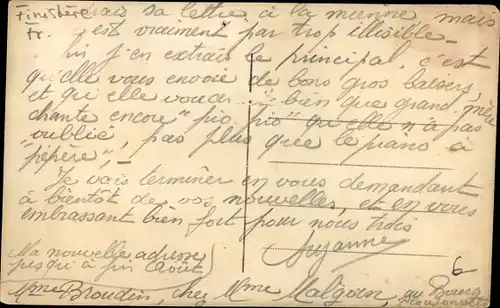 Finistère
Fr.
rais sa lettre à la mienne mais
est vraiment par trop illisible -
j'en extrais le principal, c'est
qu'elle vous envoie de bons gros baisers,
et qu'elle bien que grand mère
chante encore "pio pio" qu'elle n'a pas
oublié, pas plus que le piano à
"pépère", -
Je vais terminer en vous demandant
à bientôt de vos nouvelles, et en vous
embrassant bien fort pour nous trois
Suzanne
6
Ma nouvelle adresse
jusqu'à fin Août,
Mme Broudin, chez Mme Malgorn, au Bourg